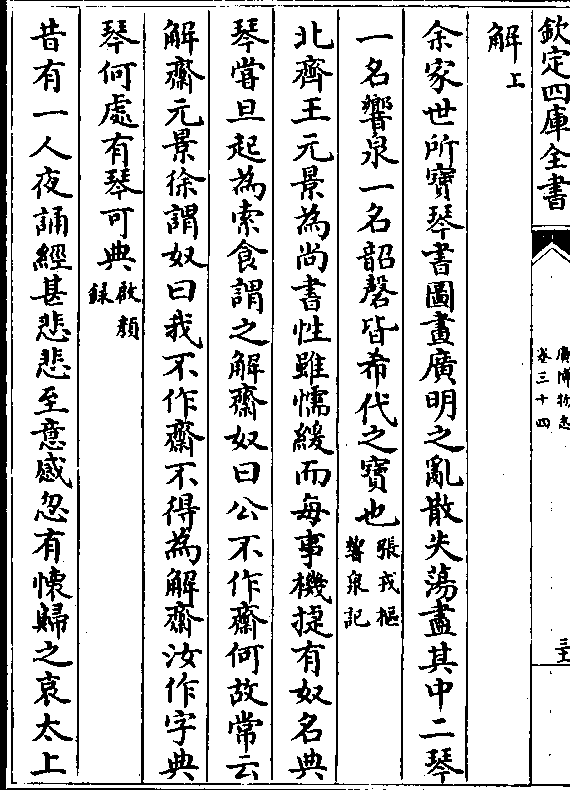 欽定四庫全書
廣博物志
卷三十四
三十二
解上
余家世所寶琴書圖畫廣明之亂散失蕩盡其中二琴
一名響泉一名韶磬皆希代之寶也張戎樞響泉記
北齊王元景為尚書性雖懦緩而每事機捷有奴名典
琴嘗旦起為索食謂之解齋奴曰公不作齋何故常云
解齋元景徐謂奴曰我不作齋不得為解齋汝作字典
琴何處有琴可典啟顏錄
昔有一人夜誦經甚悲悲至意感忽有懷歸之哀太上